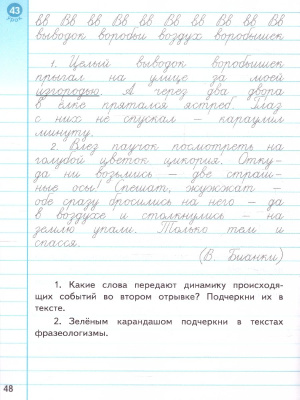 43
урок
вв Вв вв Вв вв Вв вв Вв вв Вв
выводок воробьи воздух воробьишек
1. Целый выводок воробьишек
прыгал на улице за моей
изгородью. А через два двора
в ёлке прятался ястреб. Глаз
с них не спускал – караулил
минуту.
2. Влез паучок посмотреть на
голубой цветок цикория. Отку-
да ни возьмись – две страш-
ные осы! Спешат, жужжат –
обе сразу бросились на него – да
в воздухе и столкнулись – на
землю упали. Только тем и
спасся.
(В. Бианки)
1. Какие слова передают динамику происходя-
щих событий во втором отрывке? Подчеркни их в
тексте.
2. Зелёным карандашом подчеркни в текстах
фразеологизмы.
48